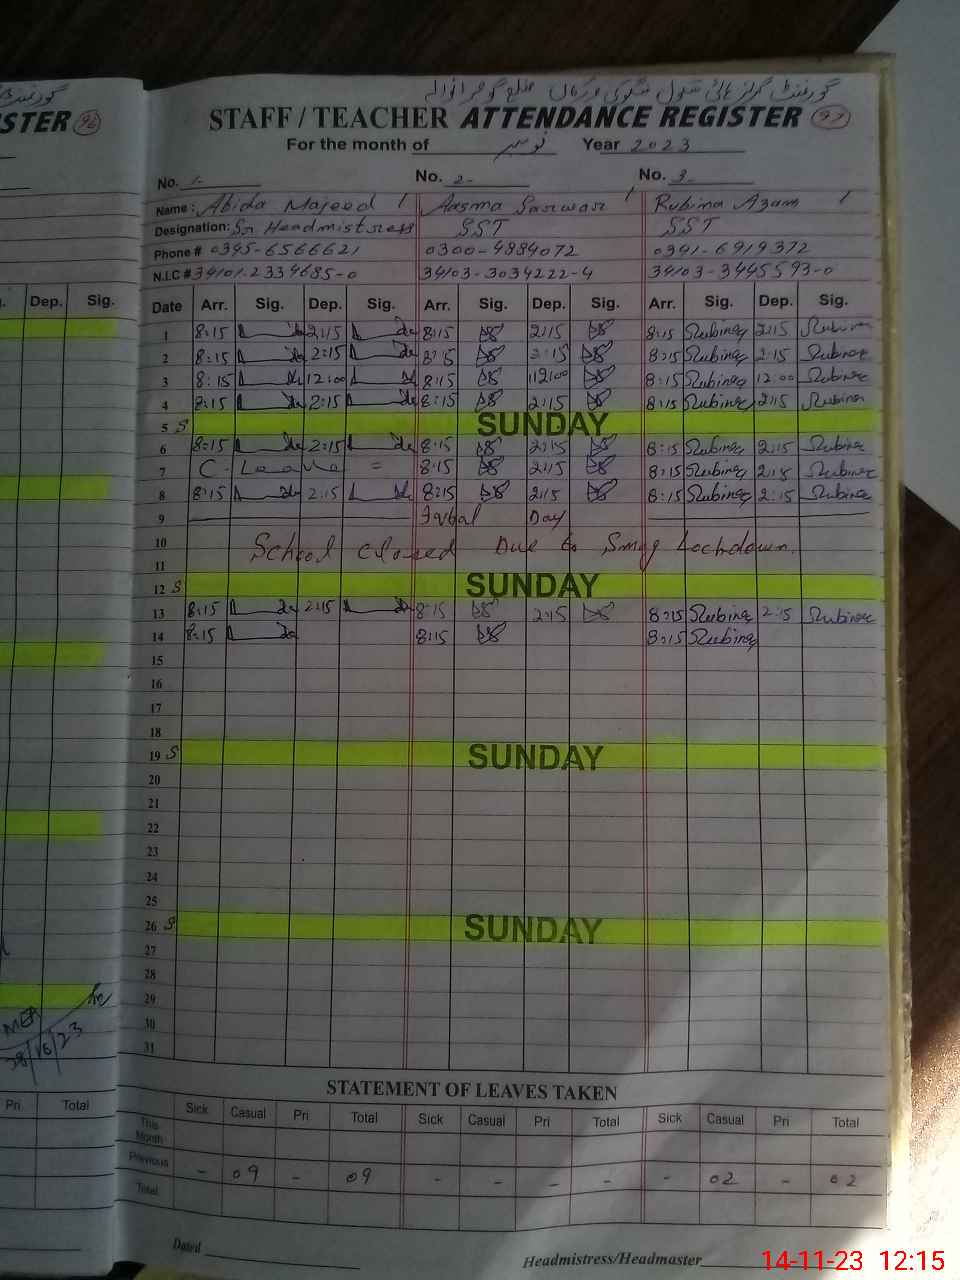 گورنمنٹ گرلز ہائی سکول ضلع گوجرانوالہ
STER 96
STAFF / TEACHER ATTENDANCE REGISTER 97
For the month of نومبر Year 2023
No. 1- No. 2- No. 3-
Name: Abida Majeed Aasma Sarwar Rubina Azam
Designation: Sr Headmistress SST SST
Phone # 0345-6566621 0300-4884072 0341-6919372
N.I.C # 34101-2334685-0 34103-3034222-4 34103-3445593-0
Dep. Sig. Date Arr. Sig. Dep. Sig. Arr. Sig. Dep. Sig. Arr. Sig. Dep. Sig.
1 8:15 2:15 8:15 2:15 8:15 Rubina 2:15 Rubina
2 8:15 2:15 8:15 2:15 8:15 Rubina 2:15 Rubina
3 8:15 12:00 8:15 12:00 8:15 Rubina 12:00 Rubina
4 8:15 2:15 8:15 2:15 8:15 Rubina 2:15 Rubina
5 S SUNDAY
6 8:15 2:15 8:15 2:15 8:15 Rubina 2:15 Rubina
7 C. Leave = 8:15 2:15 8:15 Rubina 2:15 Rubina
8 8:15 2:15 8:15 2:15 8:15 Rubina 2:15 Rubina
9 Iqbal Day
10 School closed Due to Smog Lockdown.
11
12 S SUNDAY
13 8:15 2:15 8:15 2:15 8:15 Rubina 2:15 Rubina
14 8:15 8:15 8:15 Rubina
15
16
17
18
19 S SUNDAY
20
21
22
23
24
25
26 S SUNDAY
27
28
29
30
31
MEA
28/10/23
STATEMENT OF LEAVES TAKEN
Pri Total Sick Casual Pri Total Sick Casual Pri Total Sick Casual Pri Total
This Month
Previous - 09 - 09 - - - - - 02 - 02
Total
Dated Headmistress/Headmaster
14-11-23 12:15